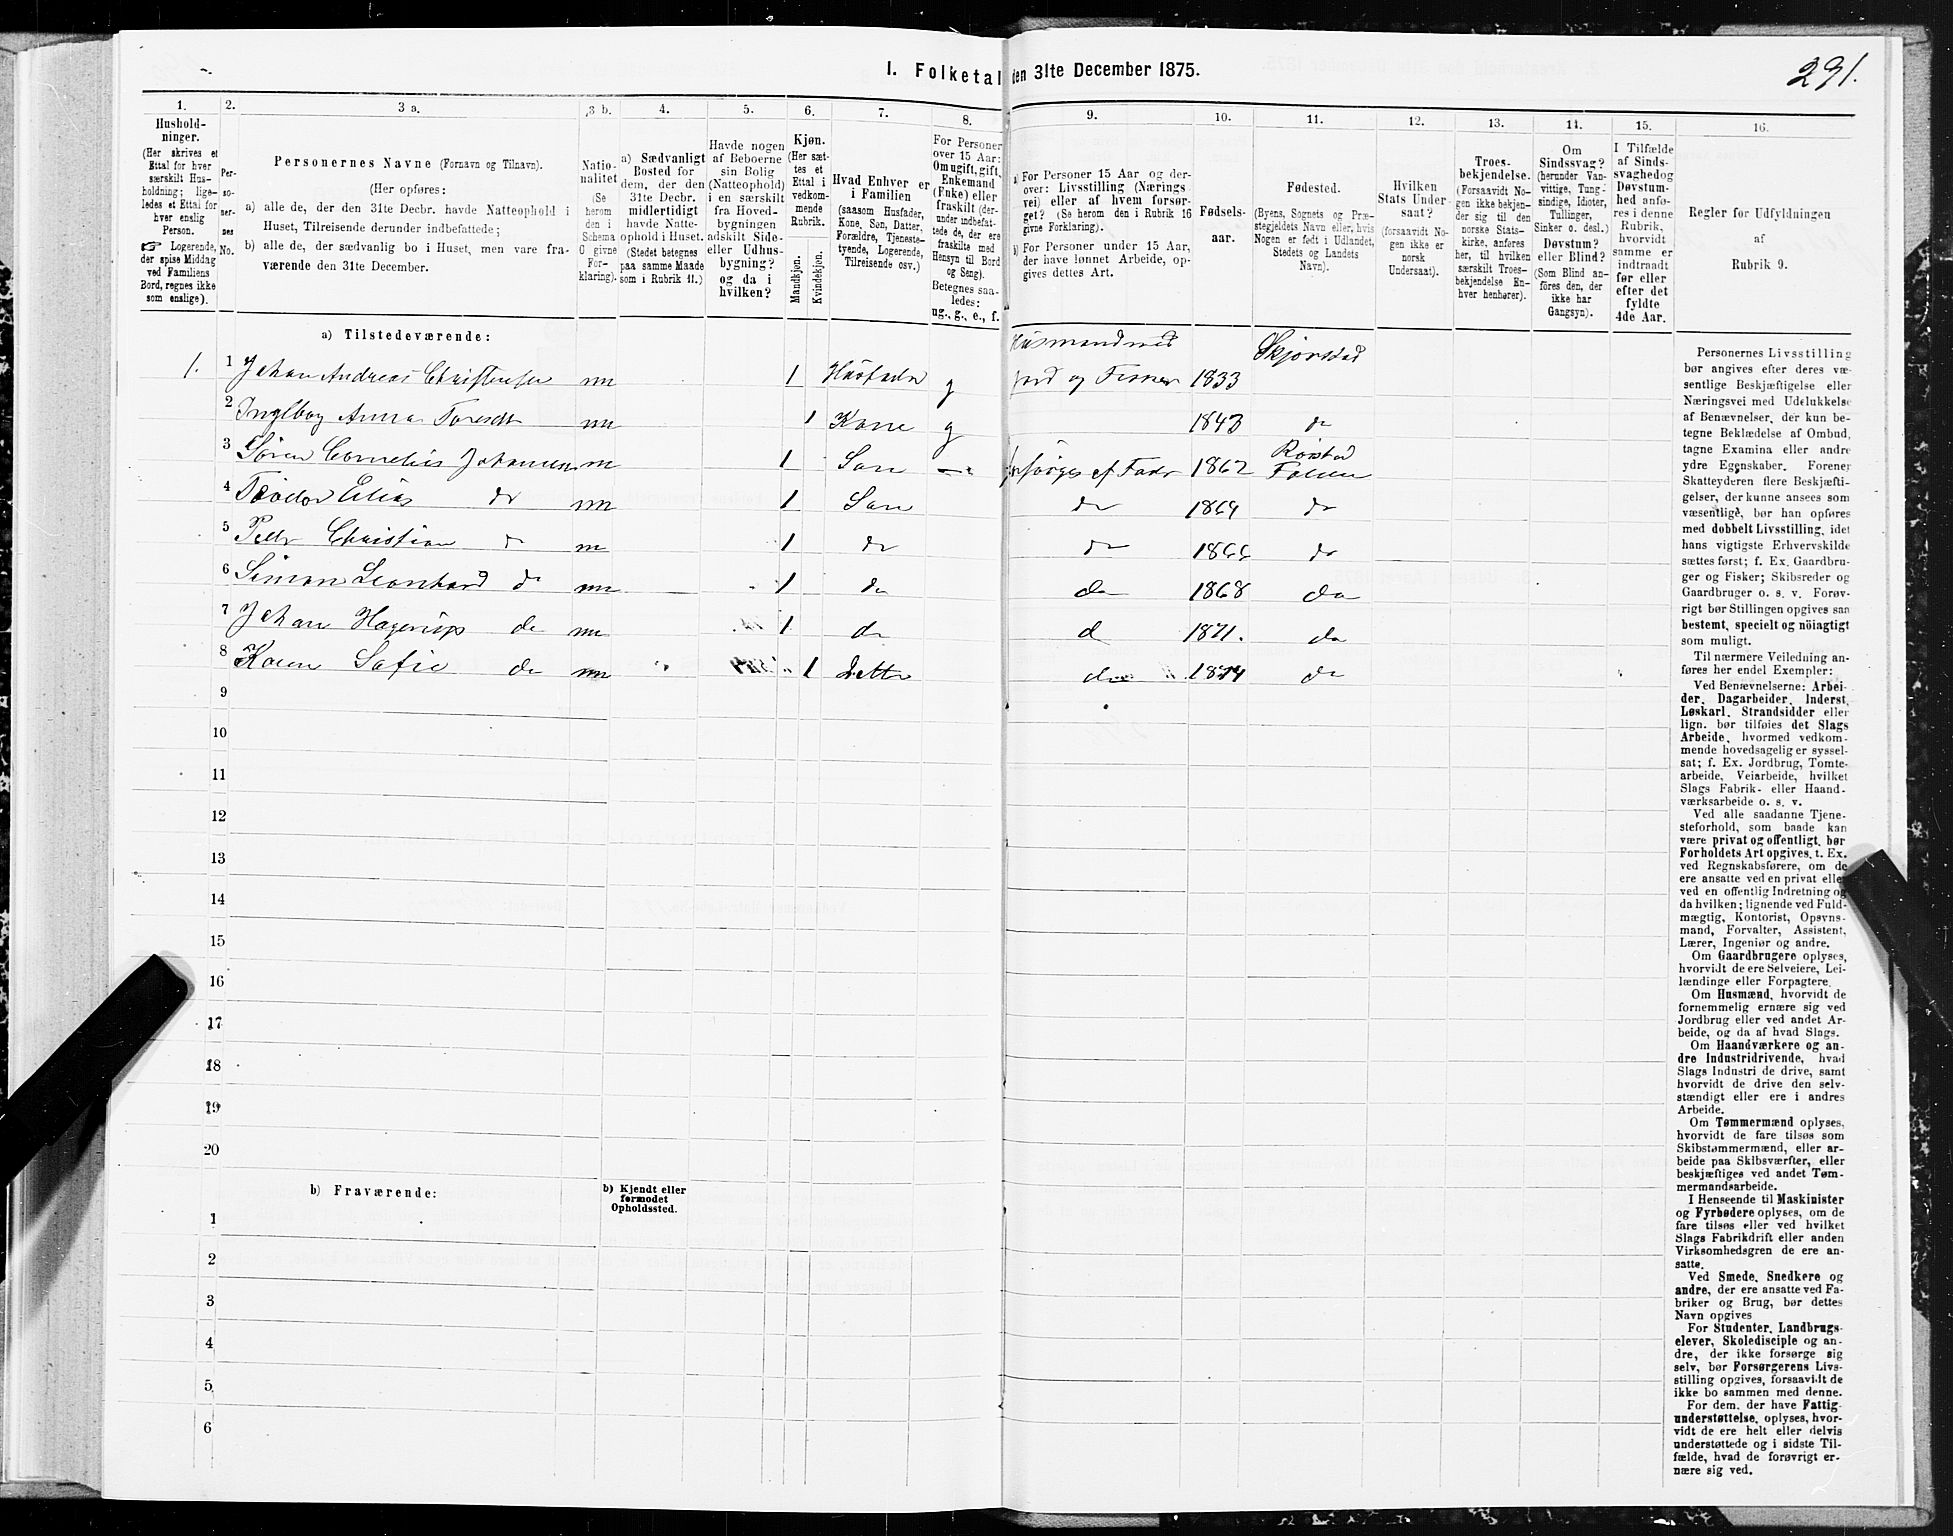 I. Folketal den 31te December 1875.
291.
1.
Hushold-
ninger.
(Her skrives et
Ettal for hver
særskilt Hus-
holdning; lige-
ledes et Ettal for
hver enslig
Person.
Logerende,
der spise Middag
ved Familiens
Bord, regnes ikke
som enslige).
2.
Per-
so-
ner-
nes
No.
3 a.
Personernes Navne (Fornavn og Tilnavn).
(Her opføres:
a) alle de, der den 31te Decbr. havde Natteophold i
Huset, Tilreisende derunder indbefattede;
b) alle de, der sædvanlig bo i Huset, men vare fra-
værende den 31te December.
3 b.
Natio-
nalitet
(Se
herom
den i
Schema
0 givne
For-
klaring).
4.
a) Sædvanligt
Bosted for
dem, der den
31te Decbr.
midlertidigt
havde Natte-
ophold i Huset.
(Stedet betegnes
paa samme Maade
som i Rubrik 11.)
5.
Havde nogen
af Beboerne
sin Bolig
(Natteophold)
i en særskilt
fra Hoved-
bygningen
adskilt Side-
eller Udhus-
bygning?
og da i
hvilken?
6.
Kjøn.
(Her sæt-
tes et
Ettal i
vedkom-
mende
Rubrik.
Mandkjøn.
Kvindekjøn.
7.
Hvad Enhver er
i Familien
(saasom Husfader,
Kone, Søn, Datter,
Forældre, Tjeneste-
tyende, Logerende,
Tilreisende osv.)
8.
For Personer
over 15 Aar:
Om ugift, gift,
Enkemand
(Enke) eller
fraskilt (der-
under indbefat-
tede de, der ere
fraskilte med
Hensyn til Bord
og Seng).
Betegnes saa-
ledes:
ug., g., e., f.
9.
a) For Personer 15 Aar og der-
over: Livsstilling (Nærings
vei) eller af hvem forsør-
get? (Se herom den i Rubrik 16
givne Forklaring).
b) For Personer under 15 Aar,
der have lønnet Arbeide, op-
gives dettes Art.
10.
Fødsels-
aar.
11.
Fødested.
(Byens, Sognets og Præ-
stegjeldets Navn eller, hvis
Nogen er født i Udlandet,
Stedets og Landets
Navn).
12.
Hvilken
Stats Under-
saat?
(forsaavidt No-
gen ikke er
norsk
Undersaat).
13.
Troes-
bekjendelse.
(Forsaavidt No-
gen ikke bekjen-
der sig til den
norske Stats-
kirke, anføres
her, til hvilken
særskilt Troes-
bekjendelse En-
hver henhører).
14.
Om
Sindssvag?
(herunder Van-
vittige, Tung-
sindige, Idioter,
Tullinger,
Sinker o. desl.)
Døvstum?
eller Blind?
(Som Blind an-
føres den, der
ikke har
Gangsyn).
15.
I Tilfælde
af Sinds-
svaghed og
Døvstum-
hed anfø-
res i denne
Rubrik,
hvorvidt
samme er
indtraadt
før eller
efter det
fyldte
4de Aar.
16.
Regler for Udfyldningen
af
Rubrik 9.
a) Tilstedeværende:
1. 1 Johan Andreas Christensen nn 1 Husfader g Husmand med Jord og Fisker 1833 Skjerstad
2 Inglbog Anna Toresdt nn 1 Kone g 1843 do
3 Søren Cornelius Johansen n 1 Søn forsørges af Fader 1862 Rørstad Folden
4 Teodor Elias do nn 1 Søn do 1864 do
5 Peder Christian do n 1 do do 1866 do
6 Simon Leonhard do nn 1 do do 1868 do
7 Johan Hagerup do nn 1 do d 1871. do
8 Karen Sofie do nn 1 Datter do 1874 do
9
10
11
12
13
14
15
16
17
18
19
20
b) Fraværende:
b) Kjendt eller
formodet
Opholdssted.
1
2
3
4
5
6
Personernes Livsstilling
bør angives efter deres væ-
sentlige Beskjæftigelse eller
Næringsvei med Udelukkelse
af Benævnelser, der kun be-
tegne Beklædelse af Ombud,
tagne Examina eller andre
ydre Egenskaber. Forener
Skatteyderen flere Beskjæfti-
gelser, der kunne ansees som
væsentlige, bør han opføres
med dobbelt Livsstilling, idet
hans vigtigste Erhvervskilde
sættes først; f. Ex. Gaardbru-
ger og Fisker; Skibsreder og
Gaardbruger o. s. v. Forøv-
rigt bør Stillingen opgives saa
bestemt, specielt og nøiagtigt
som muligt.
Til nærmere Veiledning an-
føres her endel Exempler:
Ved Benævnelserne: Arbei-
der, Dagarbeider, Inderst,
Løskarl, Strandsidder eller
lign. bør tilføies det Slags
Arbeide, hvormed vedkom-
mende hovedsagelig er syssel-
sat; f. Ex. Jordbrug, Tomte-
arbeide, Veiarbeide, hvilket
Slags Fabrik- eller Haand-
værksarbeide o. s. v.
Ved alle saadanne Tjene-
steforhold, som baade kan
være privat og offentligt, bør
Forholdets Art opgives, t. Ex.
ved Regnskabsførere, om de
ere ansatte ved en privat eller
ved en offentlig Indretning og
da hvilken; lignende ved Fuld-
mægtig, Kontorist, Opsyns-
mand, Forvalter, Assistent,
Lærer, Ingeniør og andre.
Om Gaardbrugere oplyses,
hvorvidt de ere Selveiere, Lei-
lændinge eller Forpagtere.
Om Husmænd, hvorvidt de
fornemmelig ernære sig ved
Jordbrug eller ved andet Ar-
beide, og da af hvad Slags.
Om Haandværkere og an-
dre Industridrivende, hvad
Slags Industri de drive, samt
hvorvidt de drive den selv-
stændigt eller ere i andres
Arbeide.
Om Tømmermænd oplyses,
hvorvidt de fare tilsøs som
Skibstømmermænd, eller ar-
beide paa Skibsværfter, eller
beskjæftiges ved andet Tøm-
mermandsarbeide.
I Henseende til Maskinister
og Fyrbødere oplyses, om de
fare tilsøs eller ved hvilket
Slags Fabrikdrift eller anden
Virksomhedsgren de ere an-
satte.
Ved Smede, Snedkere og
andre, der ere ansatte ved Fa-
briker og Brug, bør dettes
Navn opgives
For Studenter, Landbrugs-
elever, Skoledisciple og an-
dre, der ikke forsørge sig
selv, bør Forsørgerens Livs-
stilling opgives, forsaavidt de
ikke bo sammen med denne.
For dem, der have Fattig-
understøttelse, oplyses, hvor-
vidt de ere helt eller delvis
understøttede og i sidste Til-
fælde, hvad de forøvrigt er-
nære sig ved.